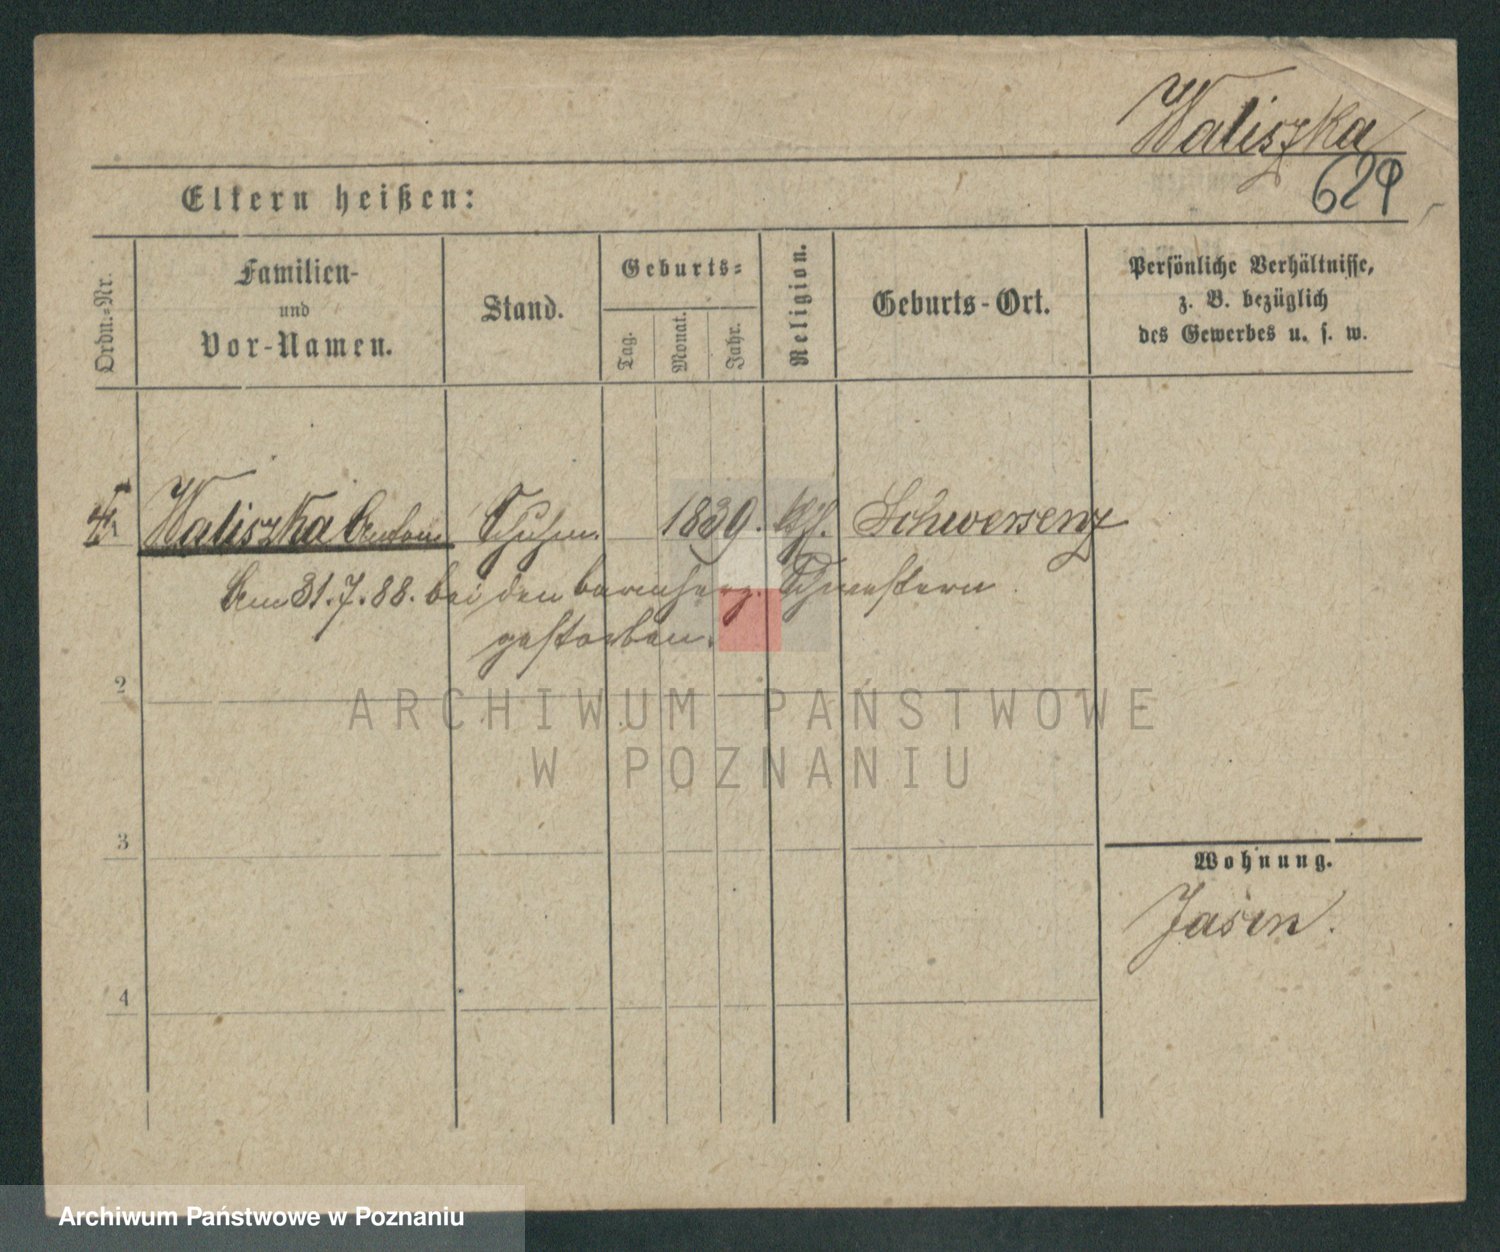 Waliszka
629
Eltern heißen:
Ordn.-Nr.
Familien-
und
Vor-Namen.
Stand.
Geburts-
Tag.
Monat.
Jahr.
Religion.
Geburts-Ort.
Persönliche Verhältnisse,
z. B. bezüglich
des Gewerbes u. s. w.
Waliszka Anton Schuhm. 1839. kth. Schwersenz
Am 31.7.88. bei den barmherz. Schwestern
gestorben.
2
3
4
Wohnung.
Jasin.
ARCHIWUM PAŃSTWOWE
W POZNANIU
Archiwum Państwowe w Poznaniu